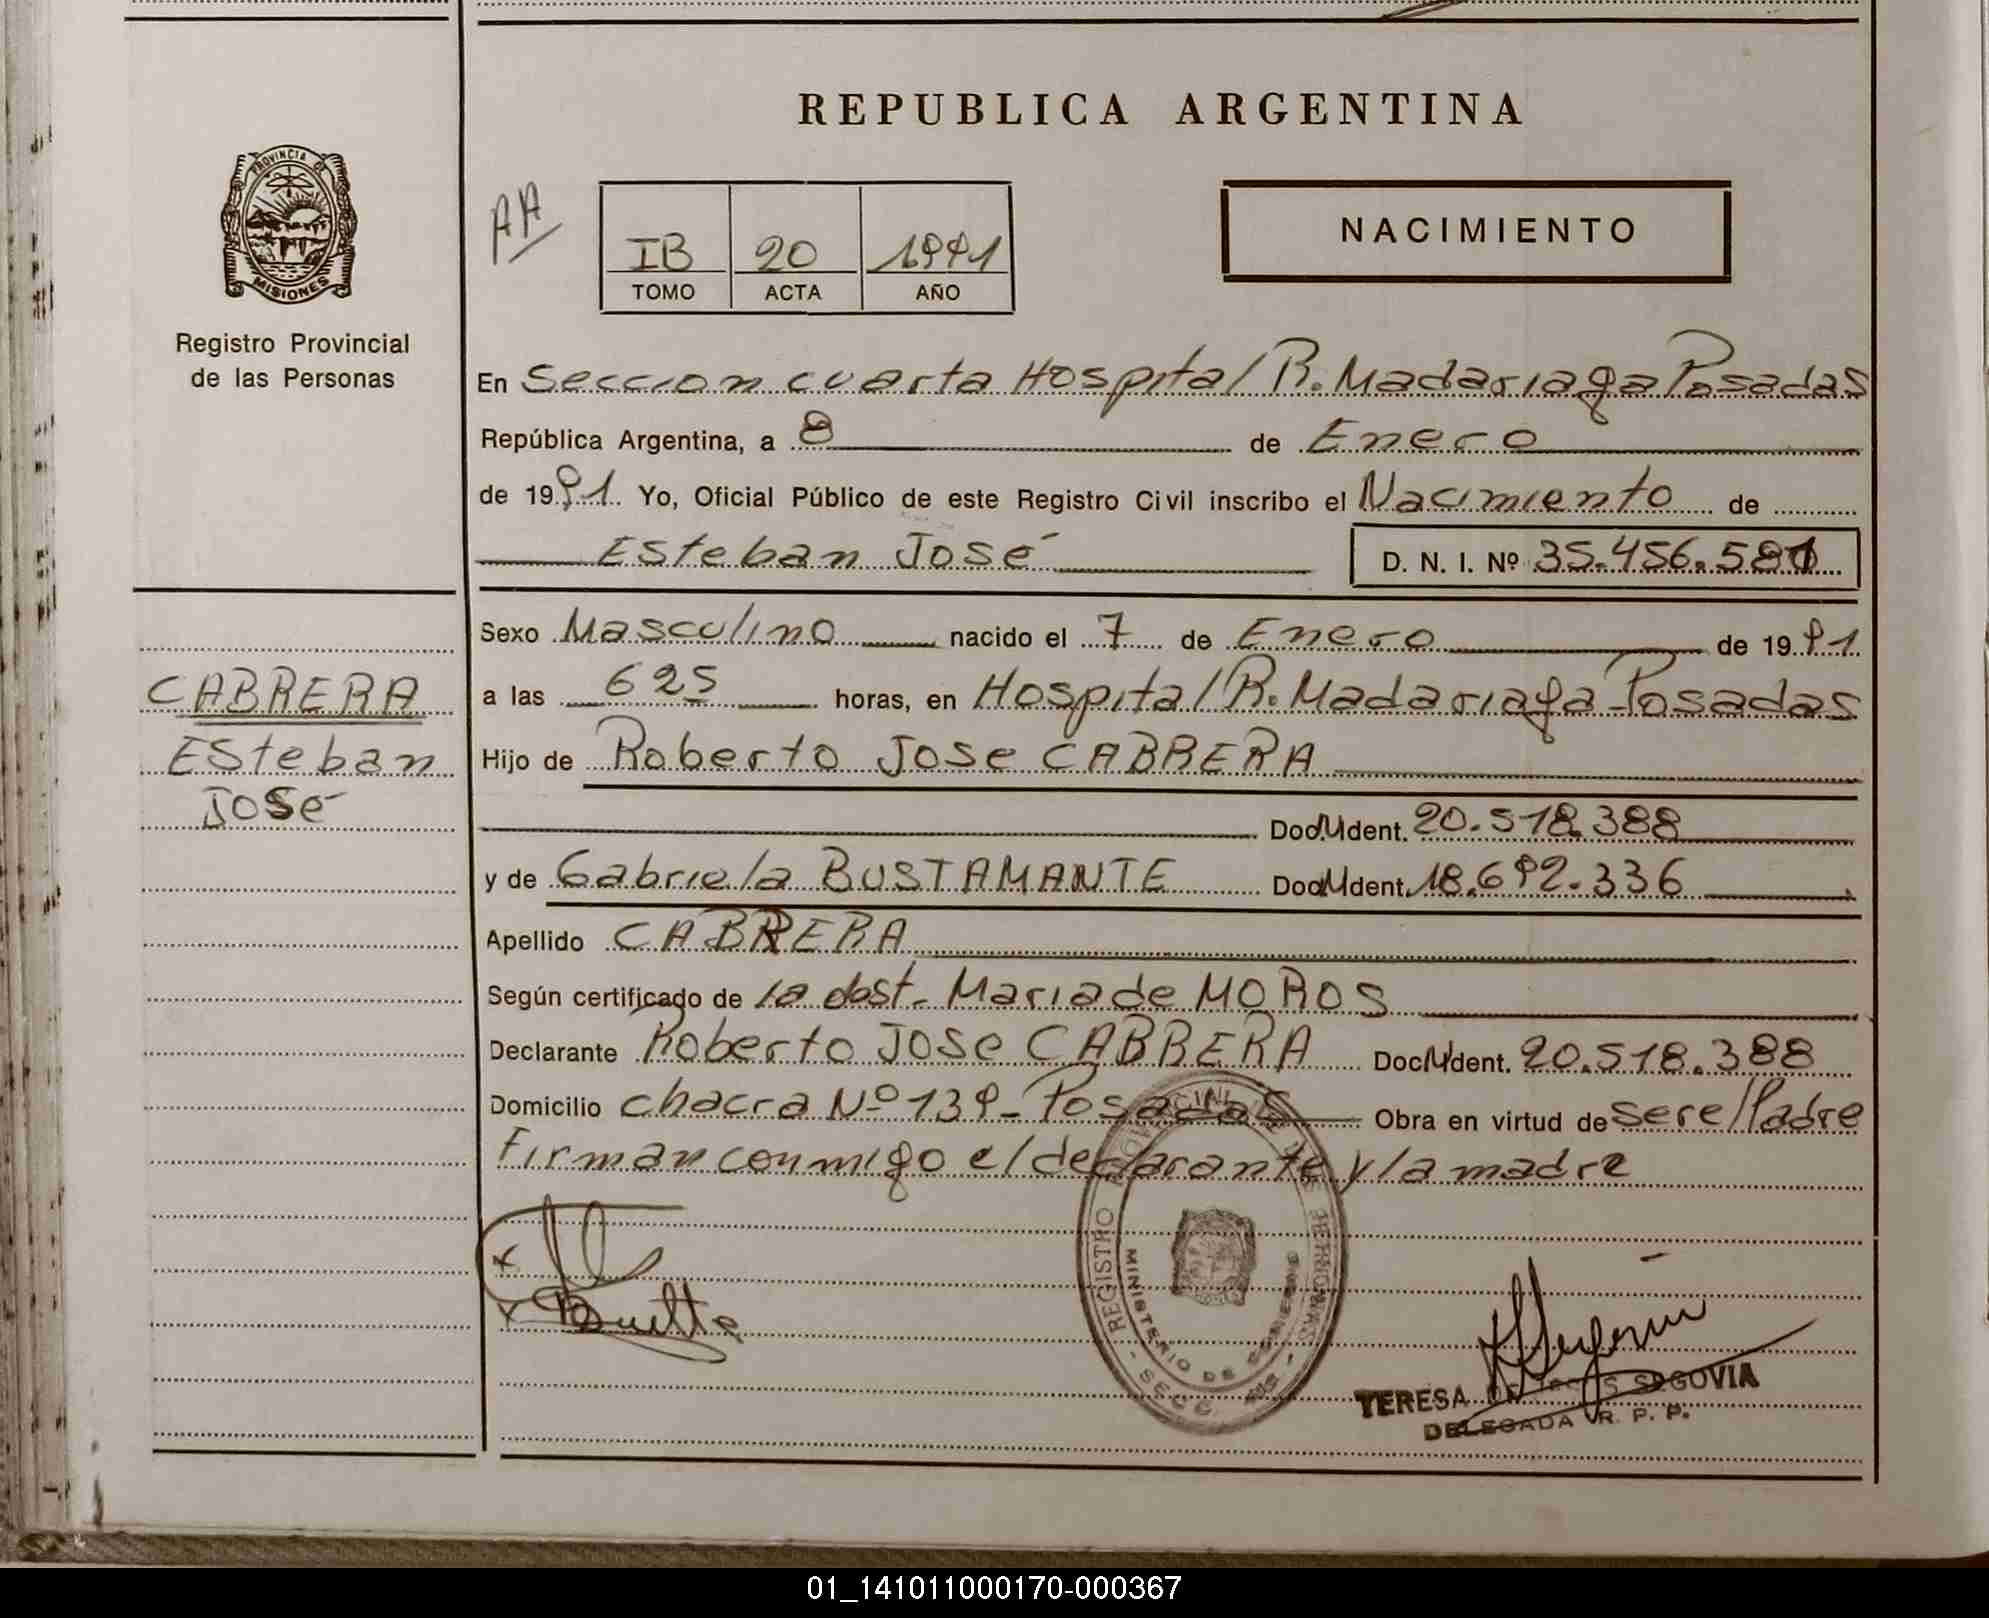 REPUBLICA ARGENTINA
PROVINCIA DE
MISIONES
Registro Provincial
de las Personas
AA
IB 20 1991
TOMO ACTA AÑO
NACIMIENTO
En Seccion cuarta Hospital R. Madariaga Posadas
República Argentina, a 8 de Enero
de 1991 Yo, Oficial Público de este Registro Civil inscribo el Nacimiento de
Esteban José D. N. I. Nº 35.456.581
Sexo Masculino nacido el 7 de Enero de 1991
a las 625 horas, en Hospital R. Madariaga Posadas
CABRERA
Esteban
José
Hijo de Roberto Jose CABRERA
Doc. Ident. 20.518.388
y de Gabriela BUSTAMANTE Doc. Ident. 18.692.336
Apellido CABRERA
Según certificado de la obst. Maria de MOROS
Declarante Roberto Jose CABRERA Doc. Ident. 20.518.388
Domicilio chacra Nº 139 - Posadas Obra en virtud de ser el Padre
Firman conmigo el declarante y la madre
REGISTRO
MINISTERIO DE GOBIERNO
SECC.
TERESA SEGOVIA
DELEGADA R. P. P.
01_141011000170-000367